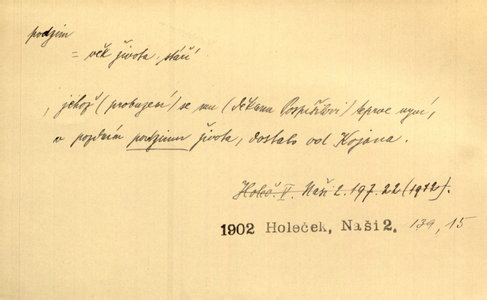 podzim
= věk života, stáří
, jehož (probuzení) se mu (děkanu Pospíšilovi) teprve nyní,
v pozdním podzimu života, dostalo od Kojana.
Holeč. V. Naši 2. 197. 22 (1912).
1902 Holeček, Naši 2, 139, 15